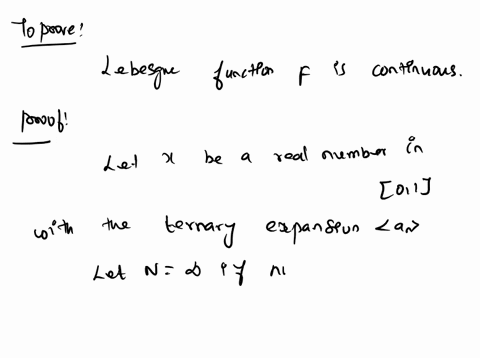 To prove!
Lebesgue function F is continuous.
proof!
Let x be a real number in
[0,1]
with the ternary expansion <an>
Let N = ∞ if